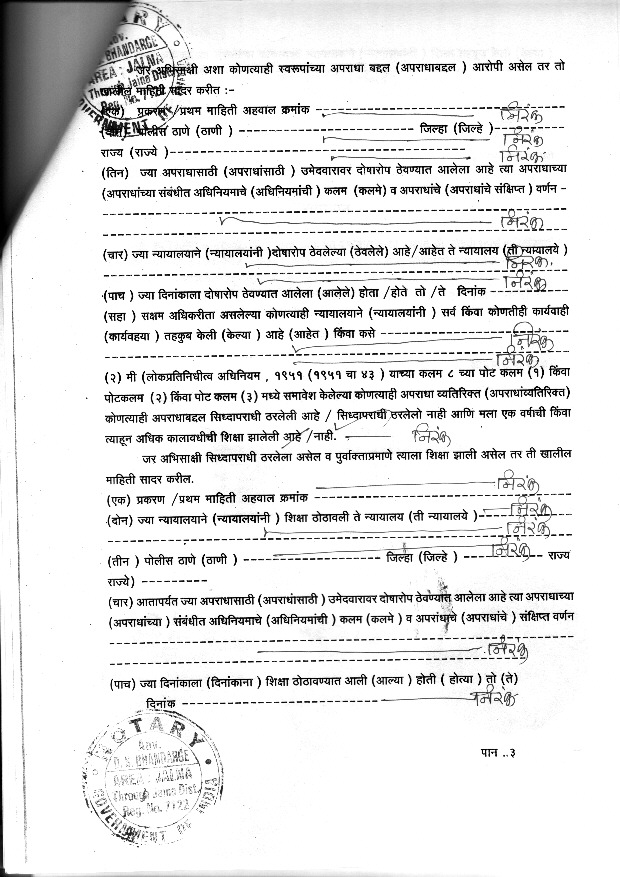 NOTARY
ADV.
BHANDARGE
AREA : JALNA
Through Jalna Dist
Reg. No. 7122
GOVERNMENT
जर अभिसाक्षी अशा कोणत्याही स्वरूपांच्या अपराधा बद्दल (अपराधाबद्दल ) आरोपी असेल तर तो
माहिती सादर करीत :-
(एक) प्रकरण /प्रथम माहिती अहवाल क्रमांक ------------------- निरंक
पोलीस ठाणे (ठाणी ) ------------------- जिल्हा (जिल्हे )------- निरंक
राज्य (राज्ये )------------------- निरंक
(तिन) ज्या अपराधासाठी (अपराधांसाठी ) उमेदवारावर दोषारोप ठेवण्यात आलेला आहे त्या अपराधाच्या
(अपराधांच्या संबंधीत अधिनियमाचे (अधिनियमांची ) कलम (कलमे) व अपराधांचे (अपराधांचे संक्षिप्त ) वर्णन -
------------------- निरंक
(चार) ज्या न्यायालयाने (न्यायालयांनी )दोषारोप ठेवलेल्या (ठेवलेले) आहे/आहेत ते न्यायालय (ती न्यायालये )
------------------- निरंक.
(पाच ) ज्या दिनांकाला दोषारोप ठेवण्यात आलेला (आलेले) होता /होते तो /ते दिनांक ------- निरंक
(सहा ) सक्षम अधिकरीता असलेल्या कोणत्याही न्यायालयाने (न्यायालयांनी ) सर्व किंवा कोणतीही कार्यवाही
(कार्यवहया ) तहकुब केली (केल्या ) आहे (आहेत ) किंवा कसे ------------------- निरंक
------------------- निरंक
(२) मी (लोकप्रतिनिधीत्व अधिनियम , १९५१ (१९५१ चा ४३ ) याच्या कलम ८ च्या पोट कलम (१) किंवा
पोटकलम (२) किंवा पोट कलम (३) मध्ये समावेश केलेल्या कोणत्याही अपराधा व्यतिरिक्त (अपराधांव्यतिरिक्त)
कोणत्याही अपराधाबद्दल सिध्दापराधी ठरलेली आहे / सिध्दापराधी ठरलेलो नाही आणि मला एक वर्षाची किंवा
त्याहून अधिक कालावधीची शिक्षा झालेली आहे /नाही. निरंक
जर अभिसाक्षी सिध्दापराधी ठरलेला असेल व पुर्वाक्ताप्रमाणे त्याला शिक्षा झाली असेल तर ती खालील
माहिती सादर करील.
(एक) प्रकरण /प्रथम माहिती अहवाल क्रमांक ------------------- निरंक
(दोन) ज्या न्यायालयाने (न्यायालयांनी ) शिक्षा ठोठावली ते न्यायालय (ती न्यायालये )------- निरंक
------------------- निरंक
(तीन ) पोलीस ठाणे (ठाणी ) ------------------- जिल्हा (जिल्हे ) ------- निरंक ---- राज्य
राज्ये) ----------
(चार) आतापर्यत ज्या अपराधासाठी (अपराधांसाठी ) उमेदवारावर दोषारोप ठेवण्यात आलेला आहे त्या अपराधाच्या
(अपराधांच्या ) संबंधीत अधिनियमाचे (अधिनियमांची ) कलम (कलमे ) व अपराधाचे (अपराधांचे ) संक्षिप्त वर्णन
------------------- निरंक
(पाच) ज्या दिनांकाला (दिनांकाना ) शिक्षा ठोठावण्यात आली (आल्या ) होती ( होत्या ) तो (ते)
दिनांक ------------------- निरंक
पान ..३
NOTARY
ADV.
D.S. BHANDARGE
AREA : JALNA
Through Jalna Dist
Reg. No. 7122
GOVERNMENT OF INDIA